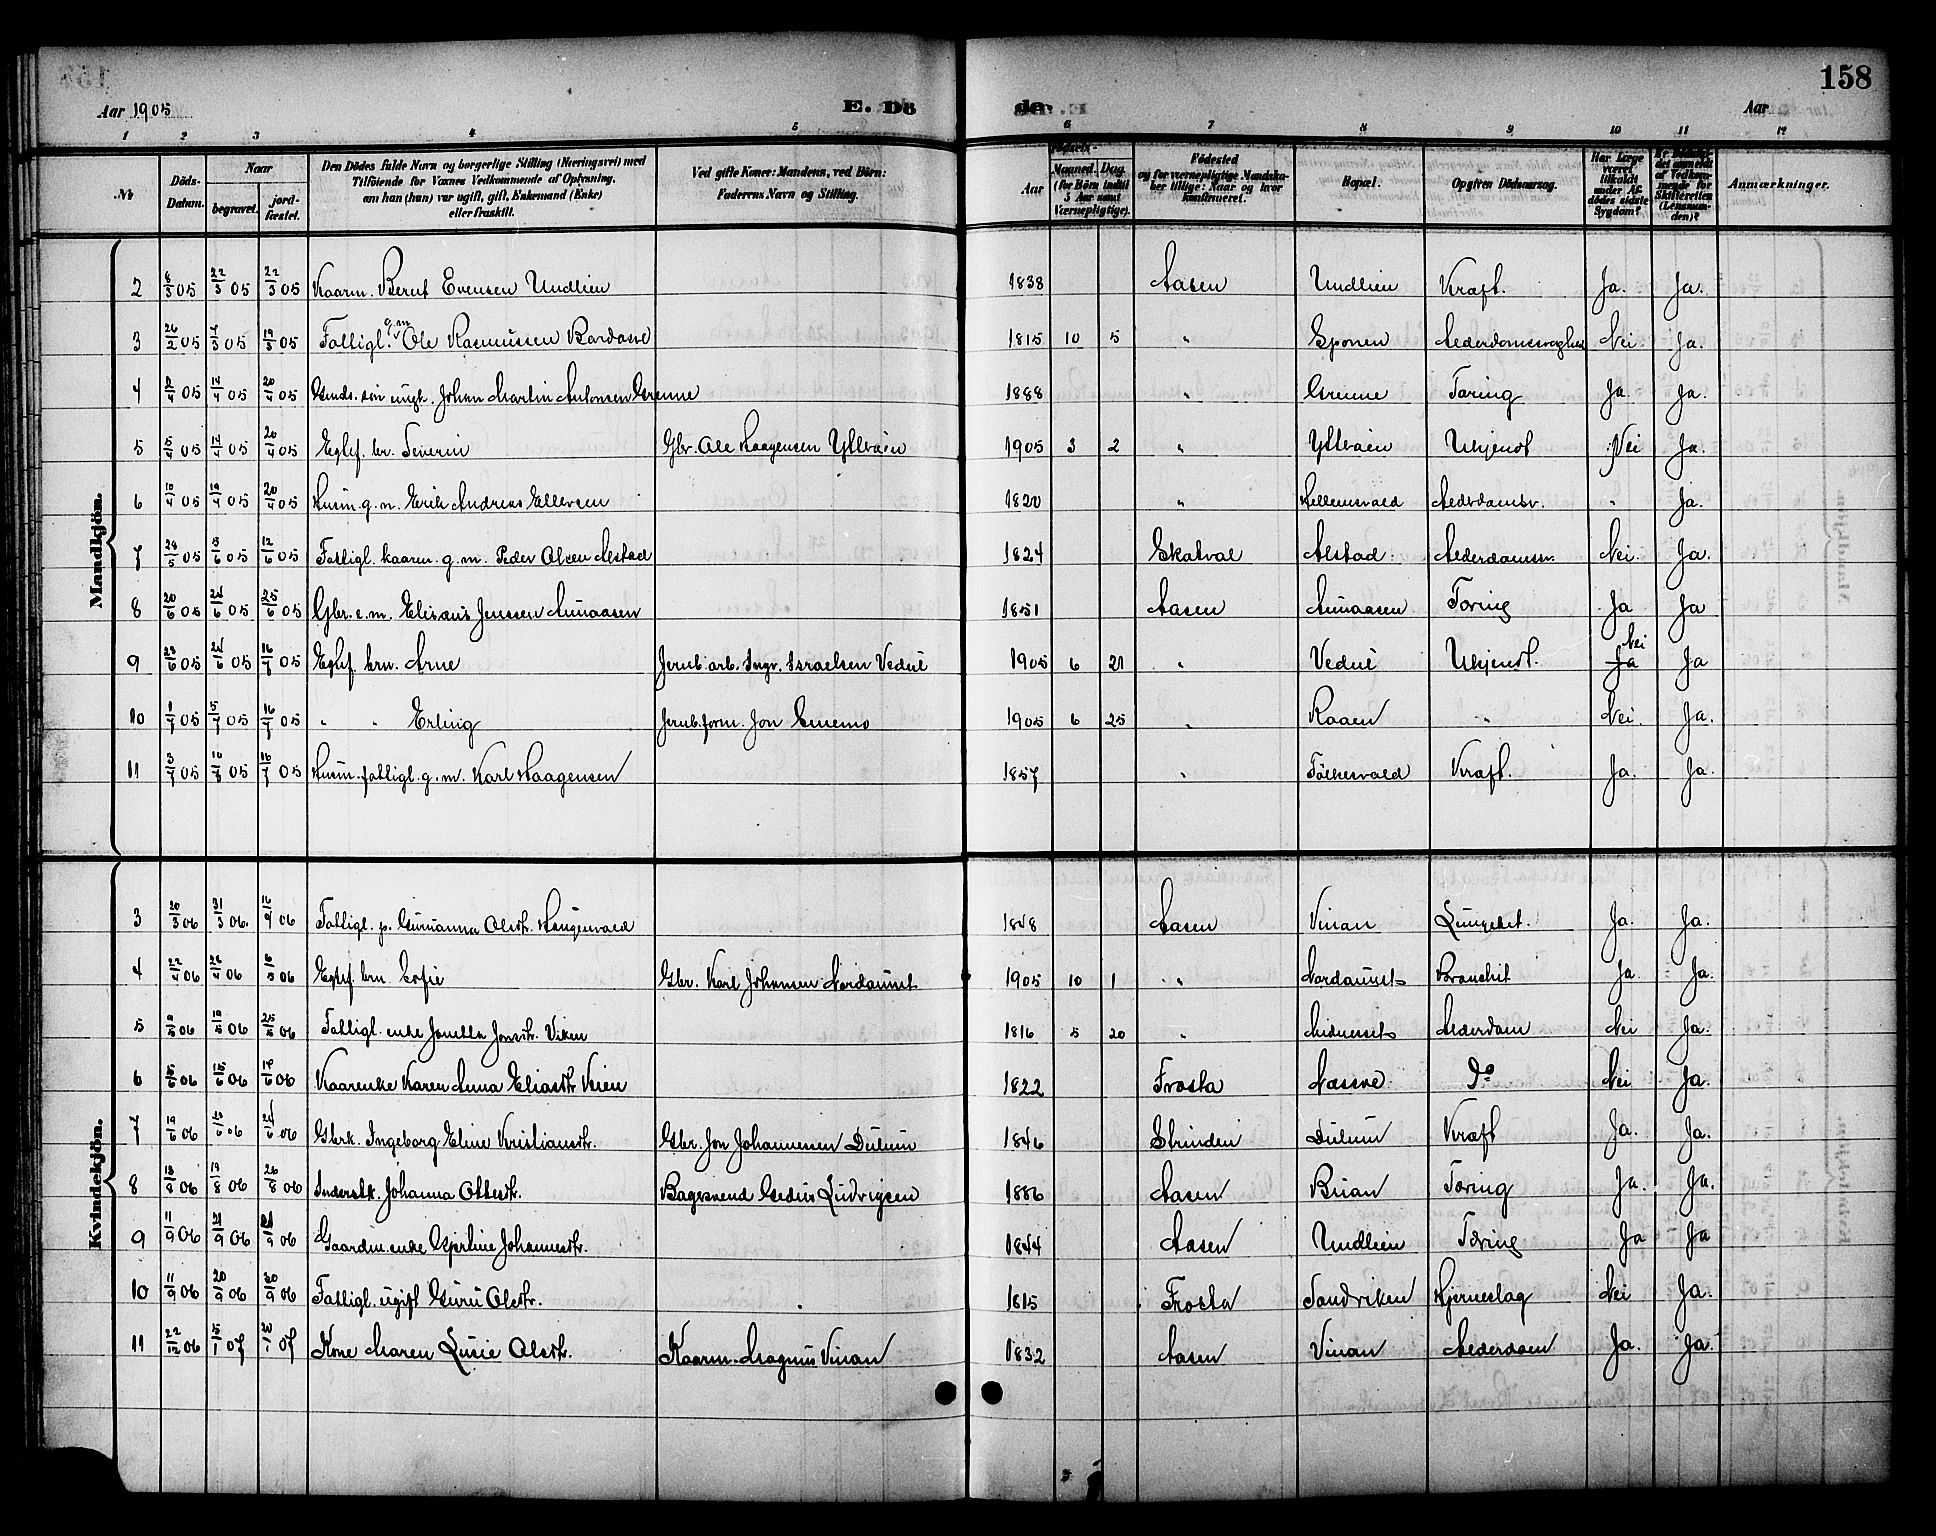 158
Aar 1905 E. Dö de. Aar
1 2 3 4 5 6 7 8 9 10 11 12
№ Döds-Datum. Naar begravet. jordfæstet. Den Dödes fulde Navn og borgerlige Stilling (Næringsvei) med Tilföiende for Voxnes Vedkommende af Oplysning, om han (hun) var ugift, gift, Enkemand (Enke) eller fraskilt. Ved gifte Koner: Mandens, ved Börn: Faderens Navn og Stilling. Aar Maaned. Dag. (for Börn indtil 5 Aar samt Værnepligtige). Födested og for værnepligtige Mandskaber tillige: Naar og hvor konfirmeret. Bopæl. Opgiven Dödsaarsag. Har Læge været tilkaldt under Afdödes sidste Sygdom? Er Dödsfaldet anmeldt af Vedkommende for Skifteretten (Lensmanden)? Anmærkninger.
Mandkjön.
2 8/3 05 22/3 05 22/3 05 Kaarm. Bernt Evensen Undlien 1838 Aasen Undlien Kræft. Ja. Ja.
3 26/2 05 4/3 05 19/3 05 Fattigl. g.m. Ole Rasmussen Bardosve 1815 10 5 " Sponen Alderdomssvaghed Nei Ja.
4 2/4 05 14/4 05 20/4 05 Gmds. sön ungk. Johan Martin Antonsen Grenne 1888 " Grenne Tæring Ja. Ja.
5 5/4 05 14/4 05 20/4 05 Egtef. br. Severin Gbr. Ole Haagensen Ytteraien 1905 3 2 " Ytteraien Ukjendt Nei Ja.
6 10/4 05 19/4 05 20/4 05 Husm. g. m. Erik Andreas Ellevsen 1820 " Hellemsvald Alderdomsv. " Ja.
7 28/5 05 5/6 05 12/6 05 Fattigl. kaarm. g. m. Peder Olsen Alstad 1824 Skatval Alstad Alderdomssv. Nei Ja.
8 20/6 05 24/6 05 25/6 05 Gbr. e. m. Elisæus Jenssen Aunaasen 1851 Aasen Aunaasen Tæring Ja Ja
9 23/6 05 24/6 05 16/7 05 Egtef. brn. Arne Jernb. arb. Ingv. Israelsen Vedul 1905 6 21 " Vedul Ukjendt. Ja Nei Ja
10 1/7 05 5/7 05 16/7 05 " " Erling Jernb. form. Jon Smemo 1905 6 25 " Raaen " Nei. Ja.
11 3/7 05 10/7 05 16/7 05 Husm. fattigl. g. m. Karl Haagensen 1857 " Fölkesvald Kræft. Ja. Ja.
Kvindekjön.
3 20/3 06 31/3 06. 16/9 06 Fattigl. p. Gurianna Olsdtr. Haugenvald 1848 Aasen Vinan Lungebet. Ja. Ja.
4 22/4 06 26/4 06 6/5 06 Egtef. brn Sofie Gbr. Karl Johansen Nordaunet 1905 10 1 " Nordaunet Bronchit Ja Ja.
5 9/5 06 19/5 06 25/5 06 Fattigl. enke Jonetta Jonsdtr. Viken 1816 5 20 " Midnesset Alderdom Nei Ja.
6 5/6 06 15/6 06 17/6 06 Kaarenke Karen Anna Eliasdtr Veien 1822 Frosta Næsve Do Nei Ja.
7 19/6 06 /6 06 24/6 06 Gbrk. Ingeborg Eline Kristiansdtr. Gbr. Jon Johannessen Dulum 1846 Strinden Dulum Kræft Ja. Ja.
8 13/8 06 19/8 06 26/8 06 Inderstk. Johanna Ottesdtr. Bagersvend Gedius Ludvigsen 1886 Aasen Buan Tæring Ja. Ja.
9 11/9 06 21/9 06 /9 06 Gaardm. enke Gjertine Johannesdtr. 1844 Aasen Undlien Tæring Ja Ja
10 11/9 06 20/9 06 30/9 06 Fattigl. ugift Guru Olsdtr. 1815 Frosta Sandviken Hjerneslag Nei Ja.
11 22/12 06 5/1 07 /1 07 Kone Maren Lusie Olsdtr. Kaarm. Magnus Vinan 1832 Aasen Vinan Alderdom Ja. Ja.